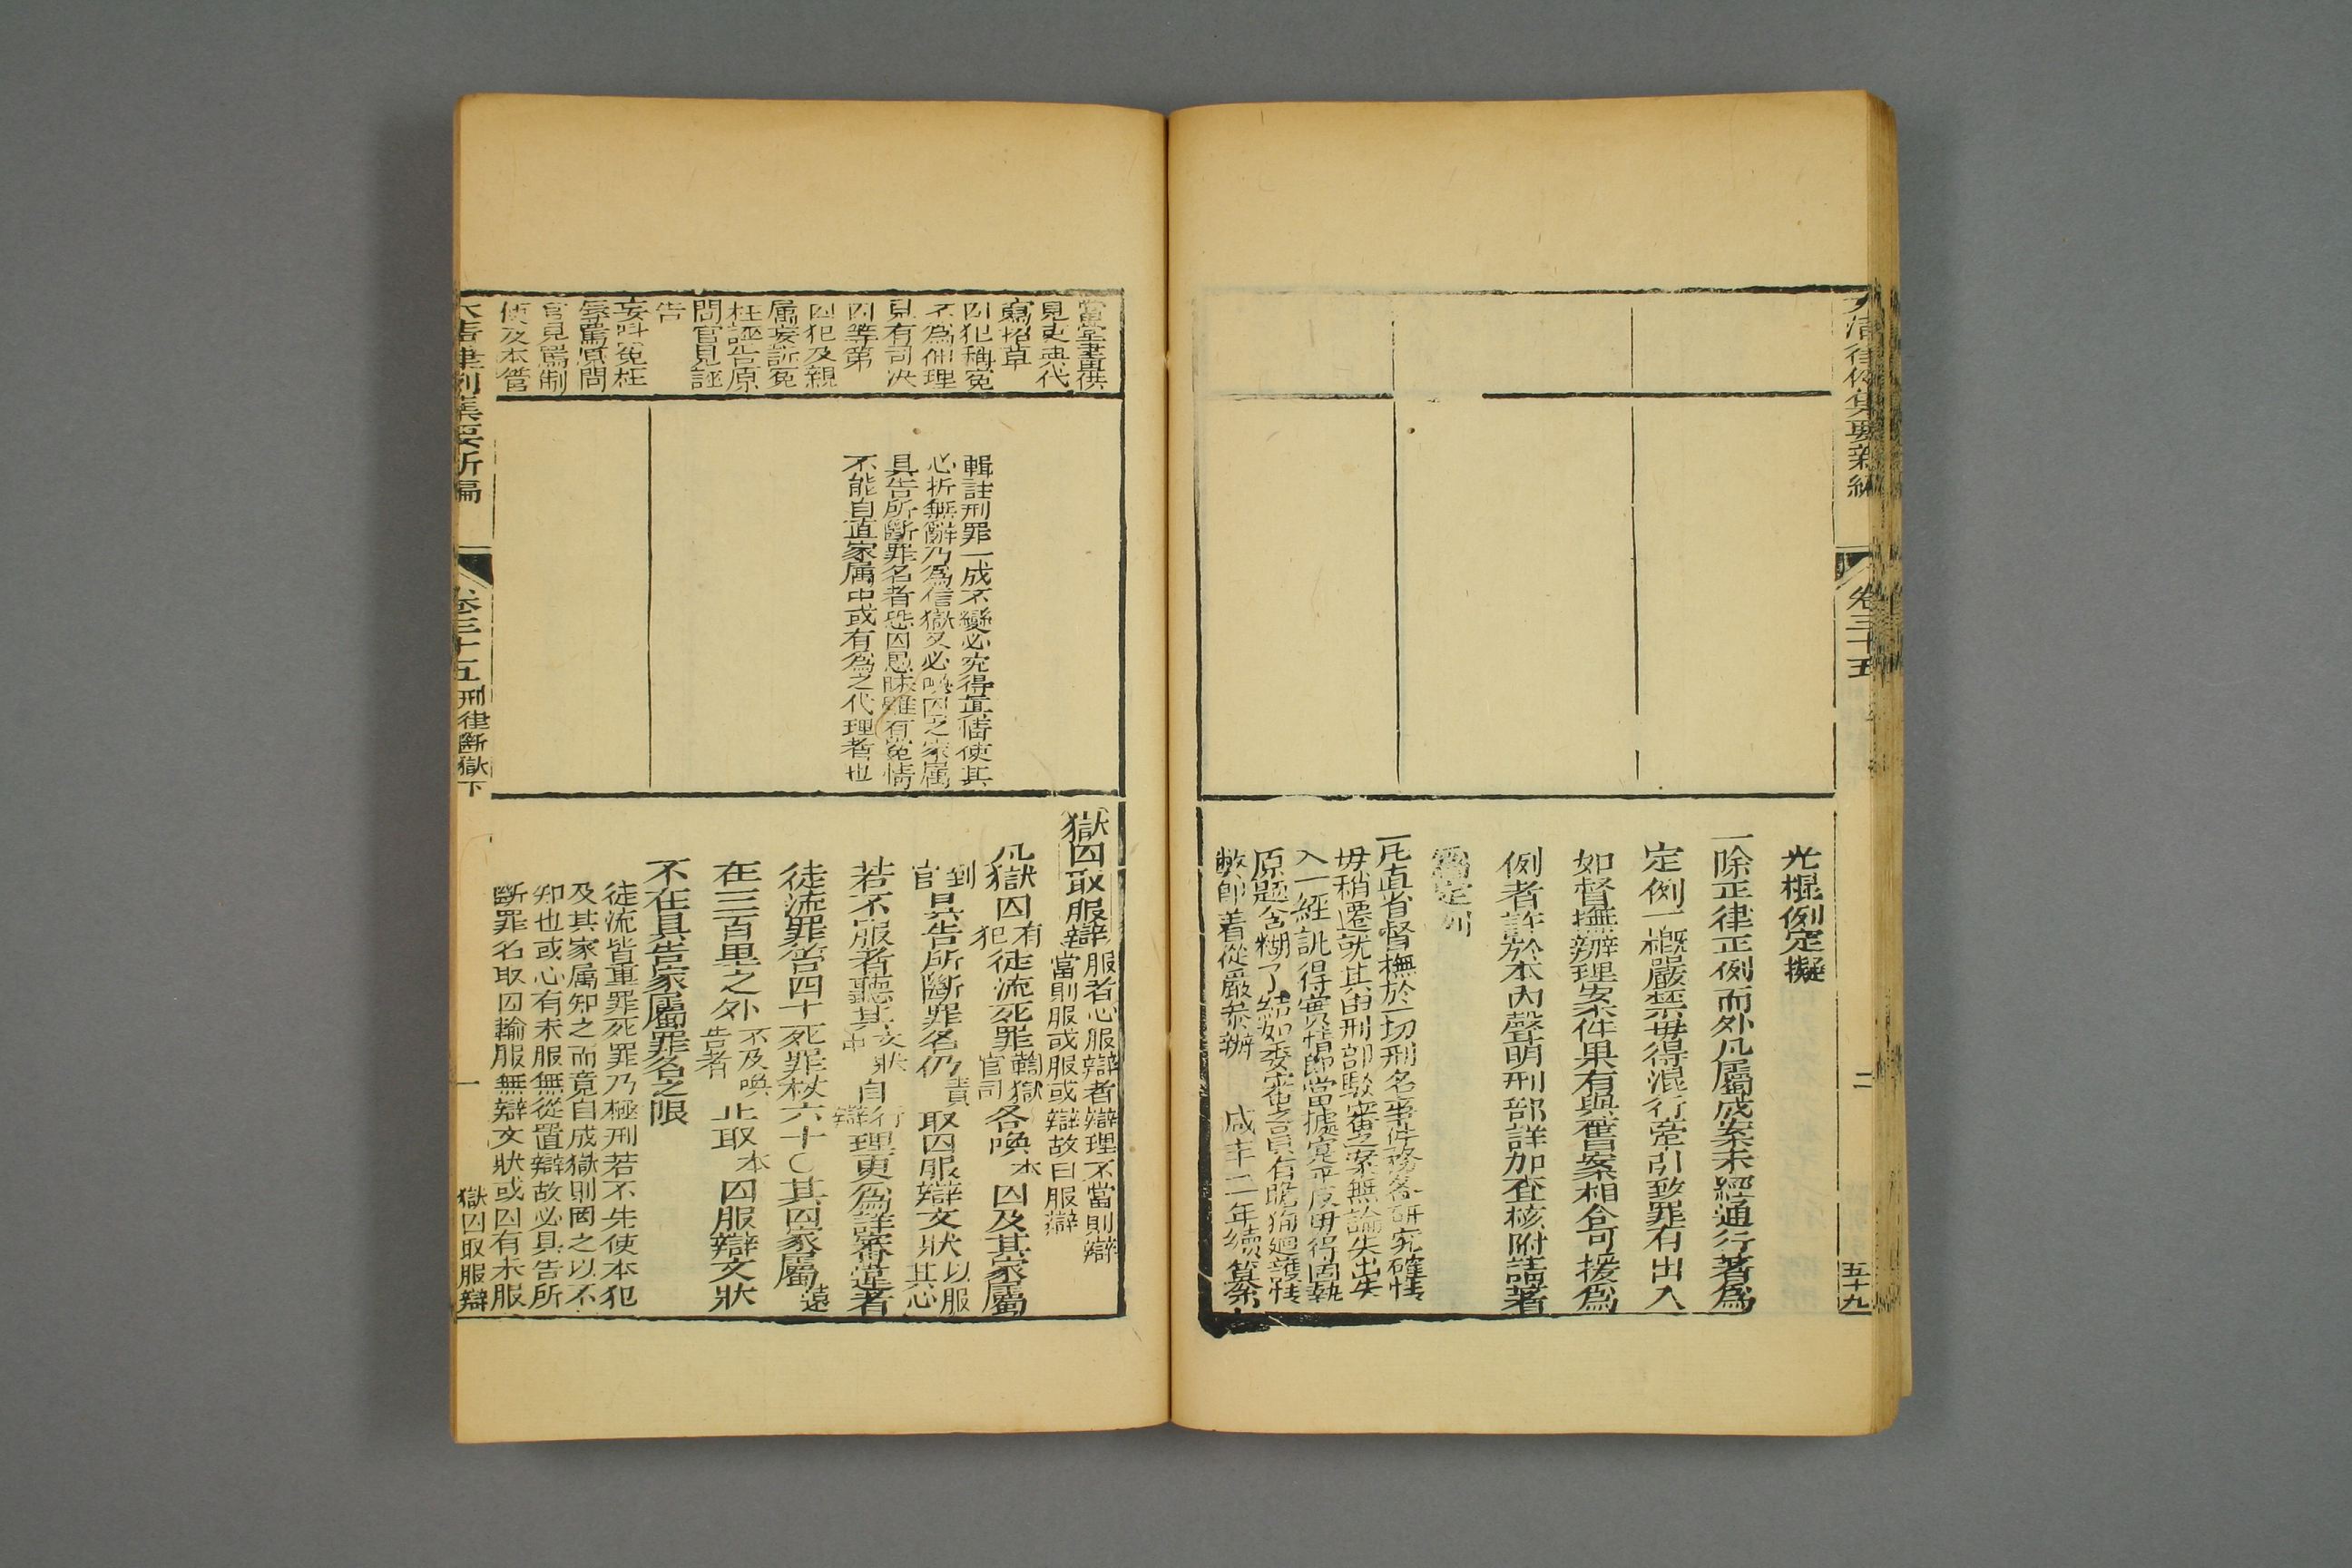 大清律例集要新編
卷三十五
二
五十九
光棍例定擬
一除正律正例而外凡屬成案未經通行著爲
定例一槪嚴禁毋得混行牽引致罪有出入
如督撫辦理案件果有與舊案相合可援爲
例者許於本內聲明刑部詳加查核附請著
爲定例
一凡直省督撫於一切刑名案件務各研究確情
毋稍遷就其由刑部駁審之案無論失出失
入一經訊得實情卽當據實平反毋得固執
原題含糊了結如委審官員有瞻徇迴護情
弊卽着從嚴參辦　咸丰二年續纂
當堂畫供
見吏典代
寫招草
囚犯稱寃
不爲伸理
見有司决
囚等第
囚犯及親
属妄訴寃
枉誣告原
問官見誣
告
妄呌寃枉
辱罵原問
官見罵制
使及本管
輯註刑罪一成不變必究得真情使其
心折無辭乃為信獄又必喚囚之家属
具告所斷罪名者恐囚愚昧雖有寃情
不能自直家属中或有為之代理者也
獄囚取服辯服者心服辯者辯理不當則辯
當則服或服或辯故曰服辯
凡獄囚有犯徒流死罪鞫獄官司各喚本囚及其家屬
到官具告所斷罪名仍責取囚服辯文狀以服其心
若不服者聽其文狀中自行辯理更爲詳審違者
徒流罪笞四十死罪杖六十〇其囚家屬遠
在三百里之外不及喚告者止取本囚服辯文狀
不在具告家屬罪名之限
徒流皆重罪死罪乃極刑若不先使本犯
及其家属知之而竟自成獄則罔之以不
知也或心有未服無從置辯故必具告所
斷罪名取囚輸服無辯文狀或囚有未服
大清律例集要新編
卷三十五
刑律斷獄下
一
獄囚取服辯